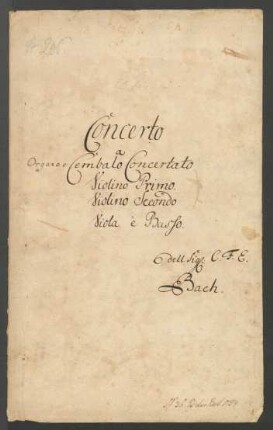 Concerto
Organo o Cembalo Concertato
Violino Primo.
Violino Secondo
Viola è Basso.
dell Sigr. C. F. E.
Bach.